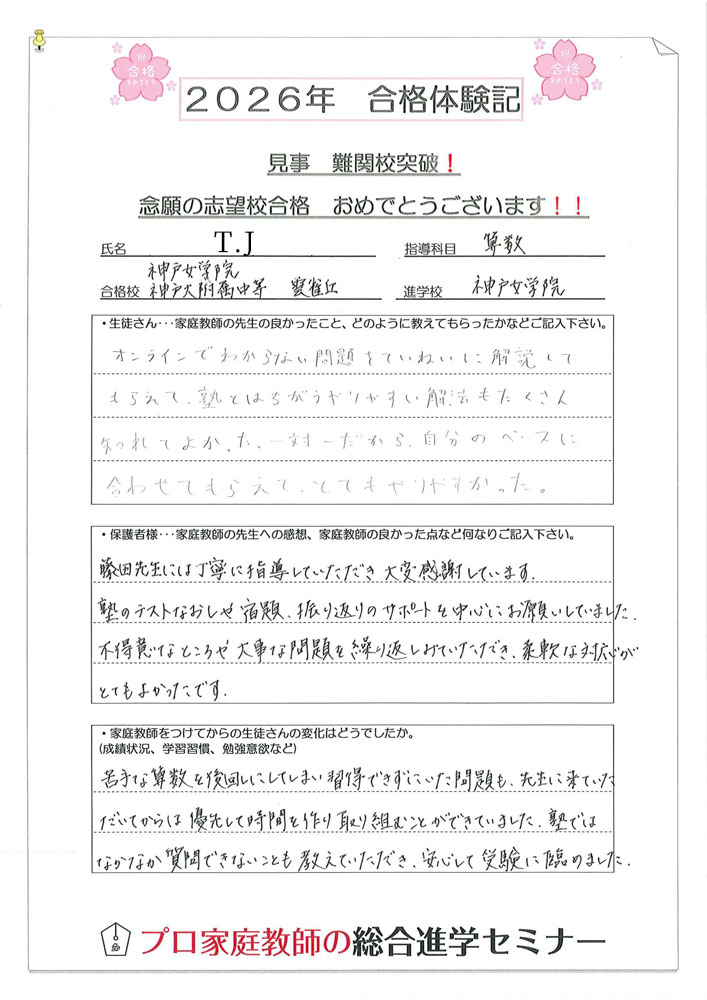 祝
合格
おめでとう
祝
合格
おめでとう
2026年 合格体験記
見事 難関校突破！
念願の志望校合格 おめでとうございます！！
氏名 T.J 指導科目 算数
神戸女学院
合格校 神戸大附属中等 雲雀丘 進学校 神戸女学院
・生徒さん・・・家庭教師の先生の良かったこと、どのように教えてもらったかなどご記入下さい。
オンラインでわからない問題をていねいに解説して
もらえて、塾とはちがうやりやすい解法もたくさん
知れてよかった。一対一だから、自分のペースに
合わせてもらえて、とてもやりやすかった。
・保護者様・・・家庭教師の先生への感想、家庭教師の良かった点など何なりご記入下さい。
藤田先生には丁寧に指導していただき大変感謝しています。
塾のテストなおしや宿題、振り返りのサポートを中心にお願いしていました。
不得意なところや大事な問題を繰り返しみていただき、柔軟な対応が
とてもよかったです。
・家庭教師をつけてからの生徒さんの変化はどうでしたか。
(成績状況、学習習慣、勉強意欲など)
苦手な算数を後回しにしてしまい習得できずにいた問題も、先生に来ていた
だいてからは優先して時間を作り取り組むことができていました。塾では
なかなか質問できないことも教えていただき、安心して受験に臨めました。
プロ家庭教師の総合進学セミナー